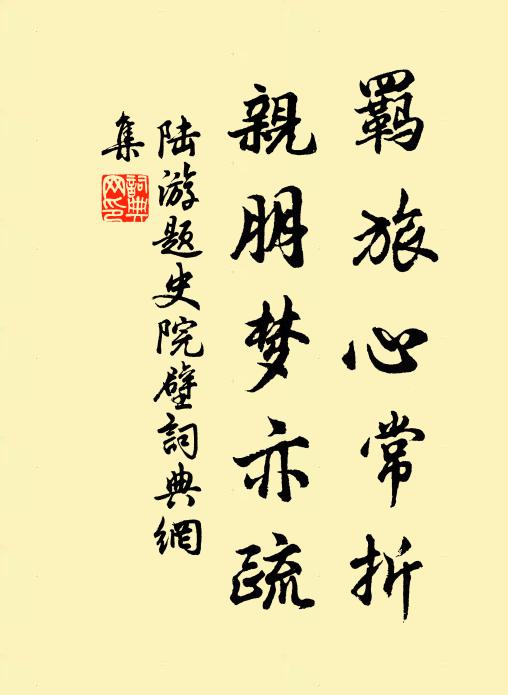 羁旅心常折
親朋梦亦疏
陆游题史院壁詞典網
集
詞典
网印